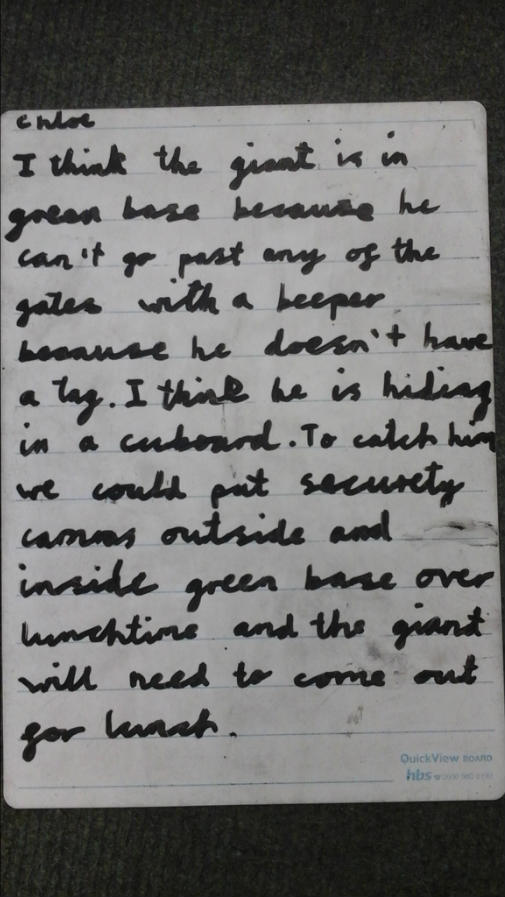 Chloe
I think the giant is in
green base because he
can't go past any of the
gates with a beeper
because he doesn't have
a tag. I think he is hiding
in a cuboard. To catch him
we could put securety
camras outside and
inside green base over
lunchtime and the giant
will need to come out
for lunch.
QuickView BOARD
hbs